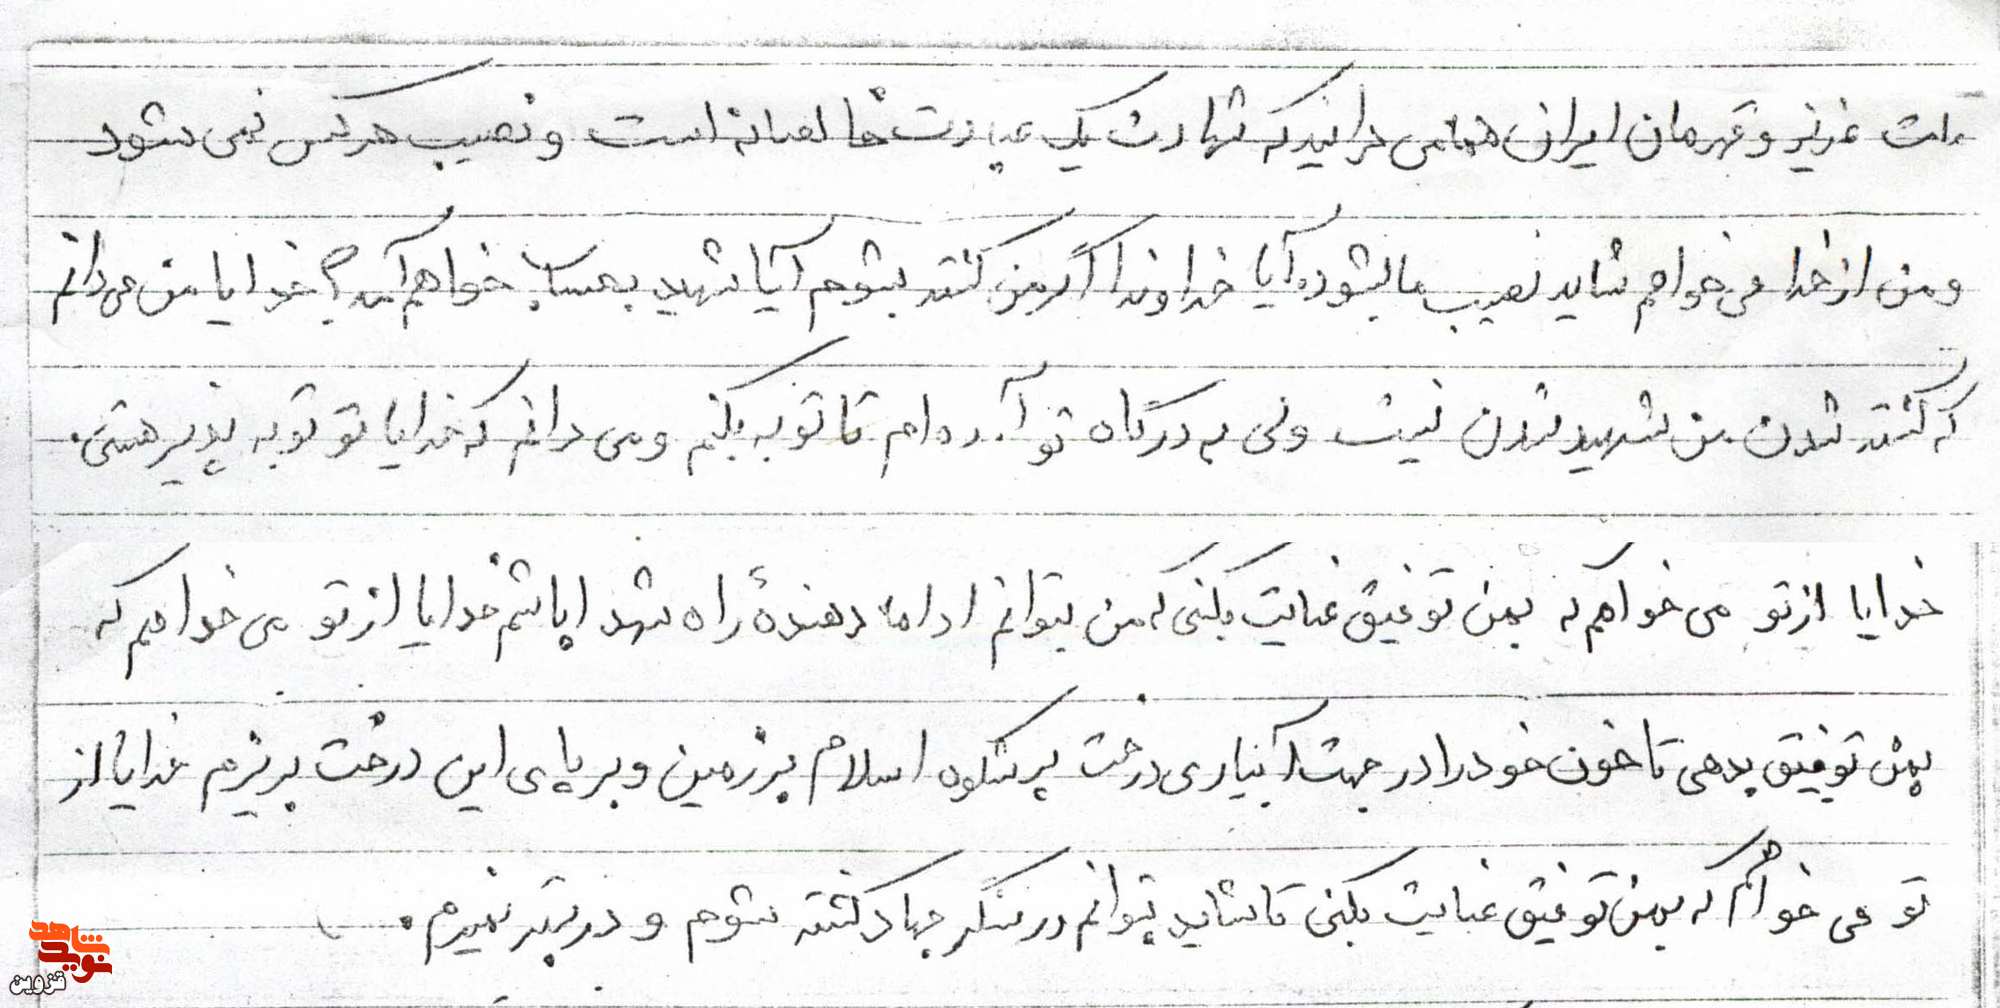 ملت عزیز و قهرمان ایران همه می دانید که شهادت یک عبادت خالصانه است و نصیب هر کس نمی شود
و من از خدا می خواهم شاید نصیب ما بشود آیا خداوندا اگر من کشته بشوم آیا شهید بحساب خواهم آمد؟ خدایا من می دانم
که کشته شدن من شهید شدن نیست ولی به درگاه تو آمده ام تا توبه بکنم و می دانم که خدایا تو توبه پذیر هستی.
خدایا از تو می خواهم که بمن توفیق عنایت بکنی که من بتوانم ادامه دهندهٔ راه شهدا باشم خدایا از تو می خواهم که
بمن توفیق بدهی تا خون خود را در جهت آبیاری درخت پرشکوه اسلام بر زمین و بر پای این درخت بریزم خدایا از
تو می خواهم که بمن توفیق عنایت بکنی تا شاید بتوانم در سنگر جهاد کشته شوم و در بستر نمیرم.
نوید شاهد
قزوین